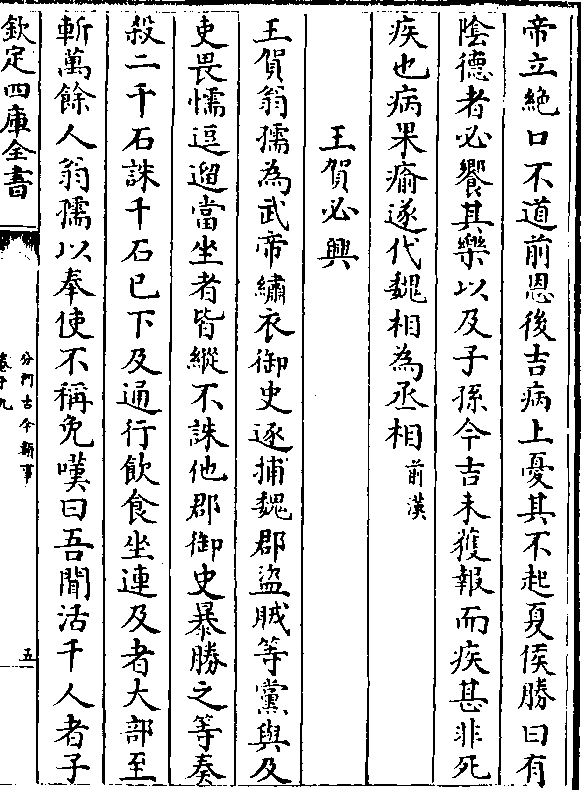 帝立絶口不道前恩後吉病上憂其不起夏侯勝曰有
隂德者必饗其樂以及子孫今吉未獲報而疾甚非死
疾也病果瘉遂代魏相為丞相前漢
王賀必興
王賀翁孺為武帝繡衣御史逐捕魏郡盜賊等黨與及
吏畏懦逗遛當坐者皆縱不誅他郡御史暴勝之等奏
殺二千石誅千石已下及通行飲食坐連及者大部至
斬萬餘人翁孺以奉使不稱免嘆曰吾聞活千人者子
欽定四庫全書
分門古今類事
五